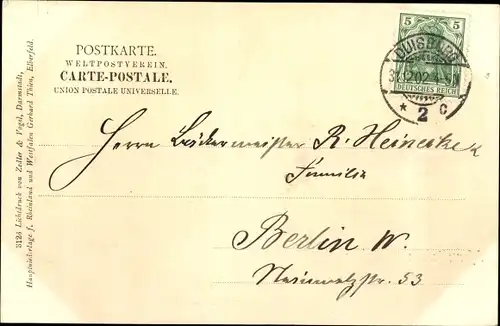 POSTKARTE.
WELTPOSTVEREIN.
CARTE-POSTALE.
UNION POSTALE UNIVERSELLE.
5 5
DEUTSCHES REICH
DUISBURG
* 2 c
Herrn Bäckermeister R. Heinecke u
Familie
Berlin W.
53
3124 Lichtdruck von Zedler & Vogel, Darmstadt,
Hauptniederlage f. Rheinland und Westfalen Gerhard Thien, Elberfeld.